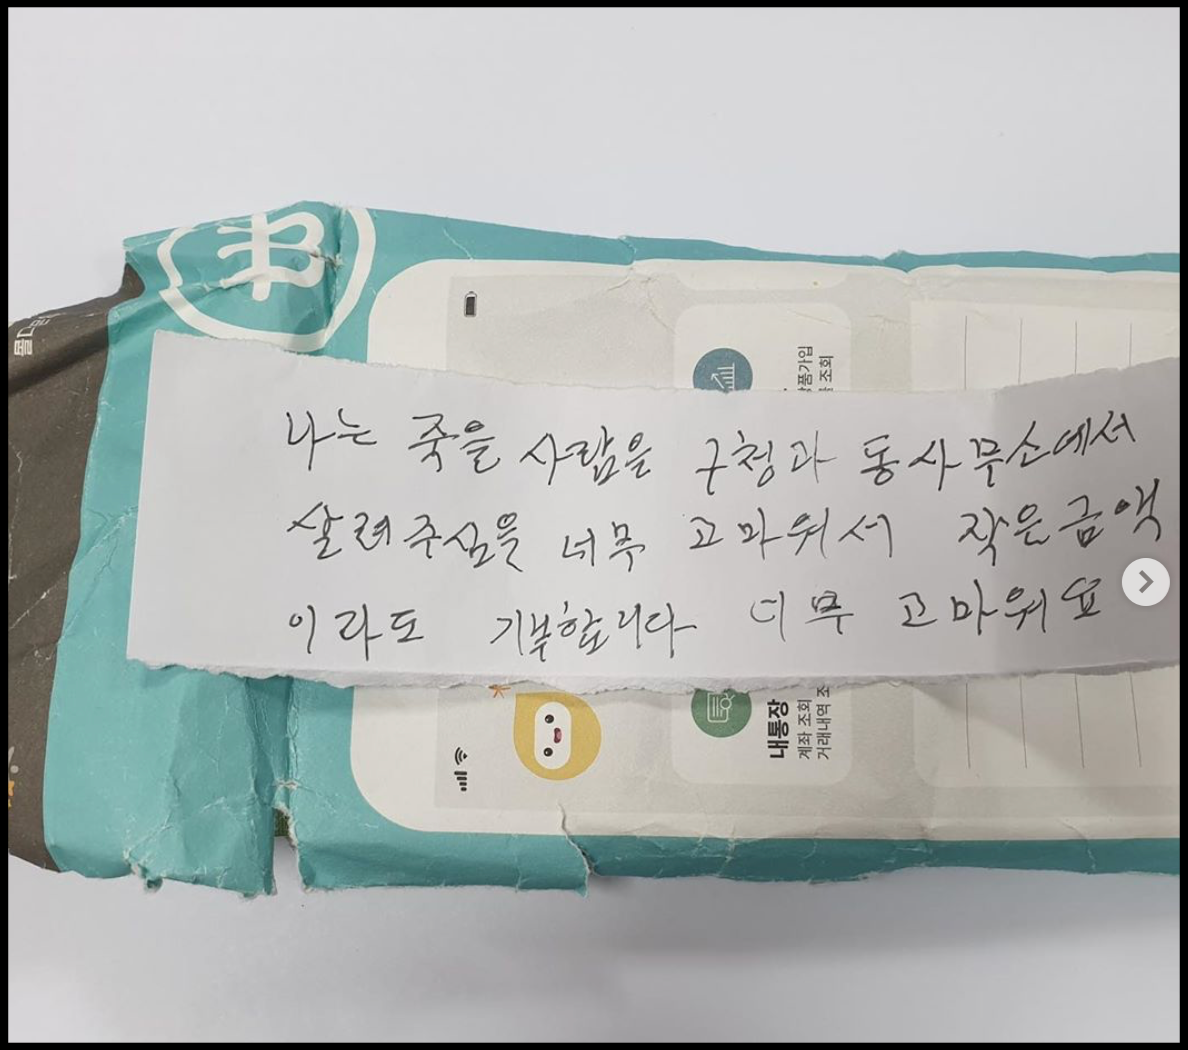 나는 죽을 사람을 구청과 동사무소에서
살려주심을 너무 고마워서 작은금액
이라도 기부합니다 너무 고마워요
내통장
계좌 조회
품가입
조회